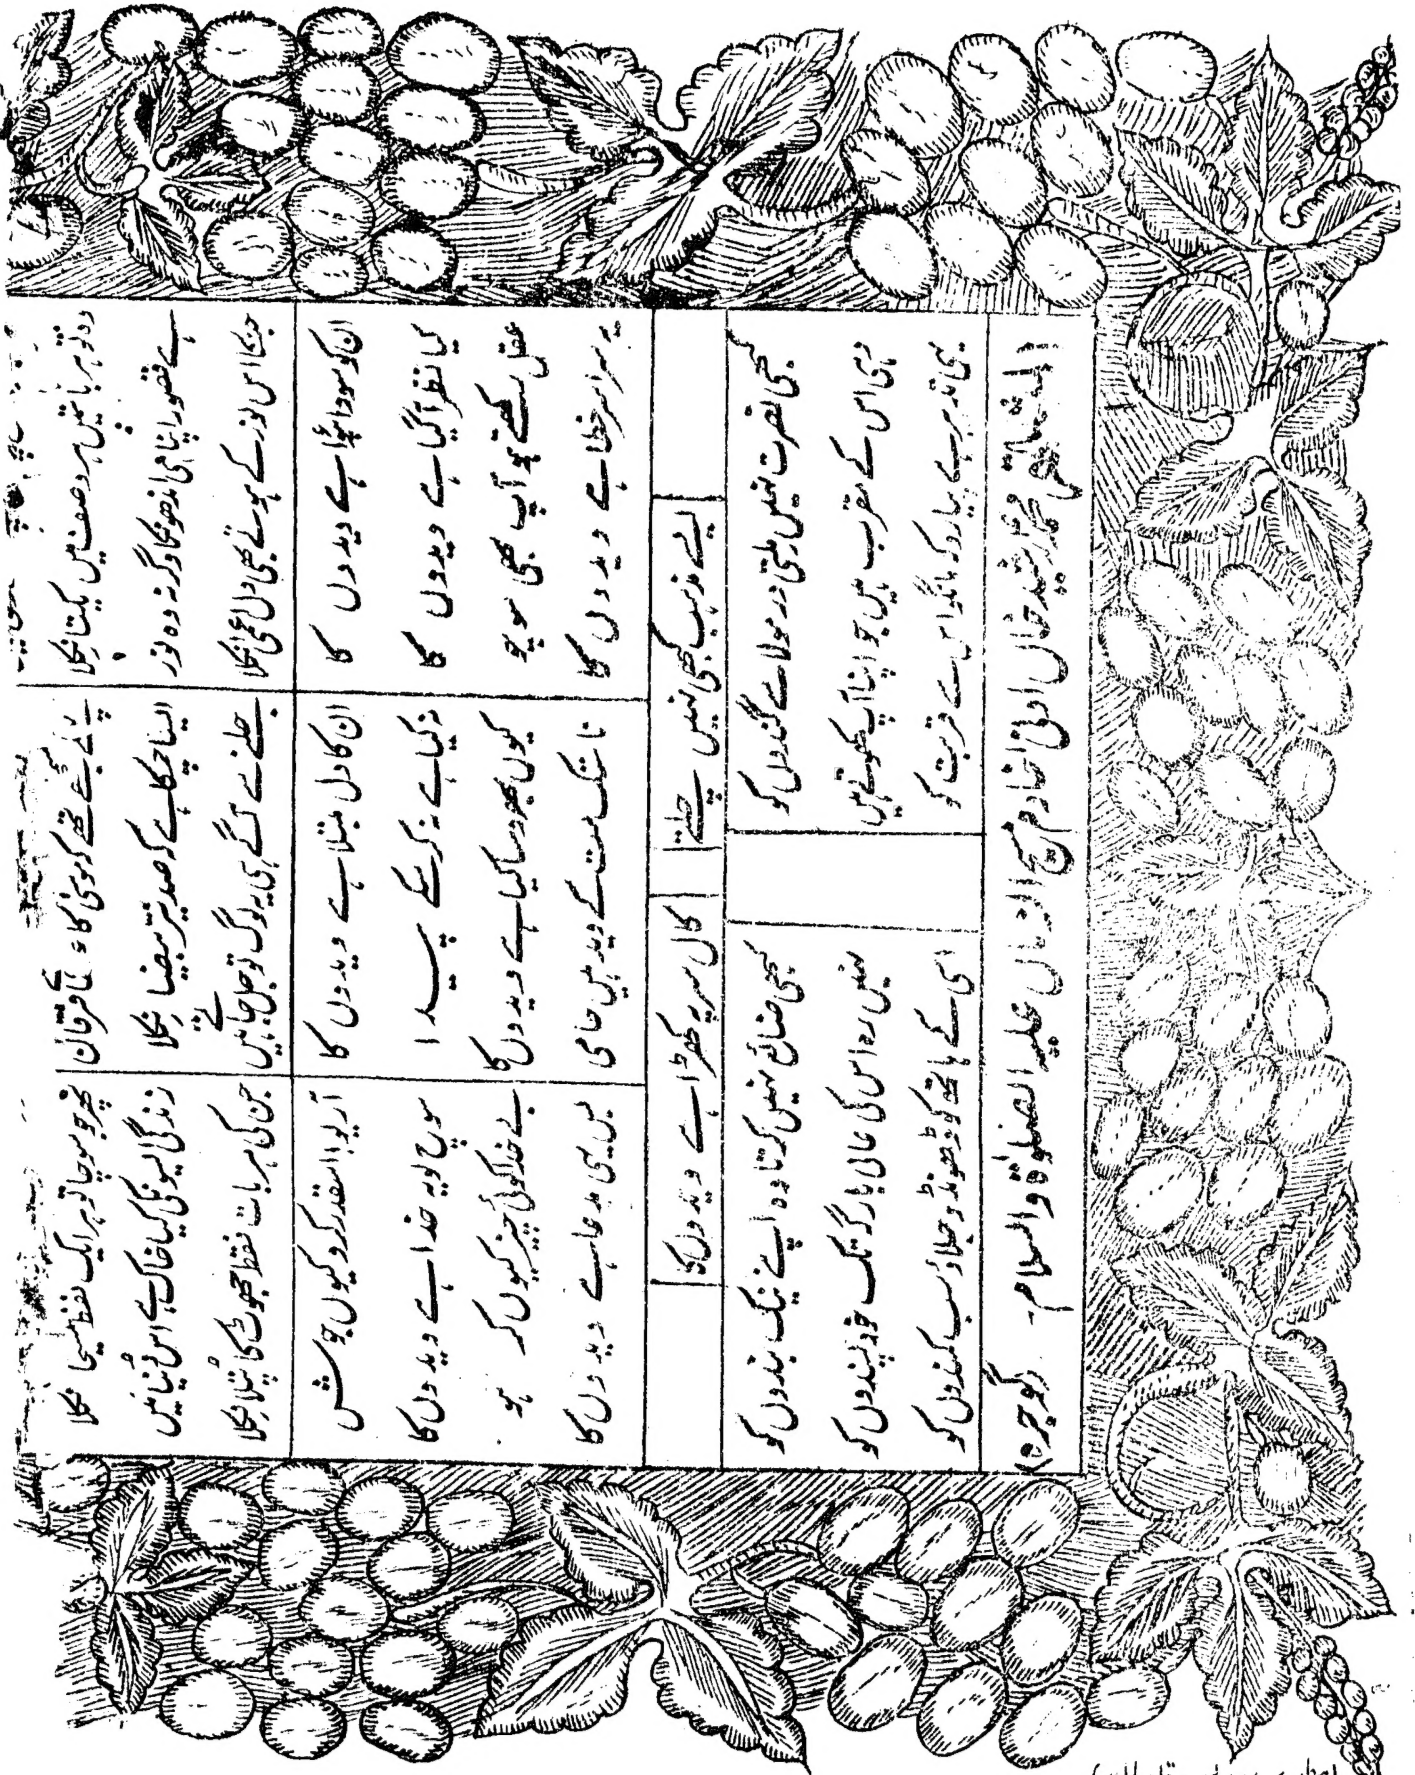 وہ تو ہر بات میں ہر وصف میں یکتا نکلا
پہلے سمجھے تھے کہ موسیٰ کا عصا ہے فرقاں
پھر جو سوچا تو ہر ایک لفظ مسیحا نکلا
ہے قصور اپنا ہی اندھونکا وگرنہ وہ نور
ایسا چمکا ہے کہ صد نیر بیضا نکلا
زندگی ایسونکی کیا خاک ہے اس دنیا میں
جنکا اس نور کے ہوتے بھی دل اعمیٰ نکلا
جلنے سے آگے ہی یہ لوگ تو جل جاتے ہیں
جن کی ہر بات فقط جھوٹ کا پتلا نکلا
ان کو سودا ہوا ہے ویدوں کا
ان کا دل مبتلا ہے ویدوں کا
آریو اسقدر کرو کیوں جوش
کیا نظر آگیا ہے ویدوں کا
نہ کیا ہے نہ کرسکے پیدا
سوچ لو یہ خدا ہے ویدوں کا
عقل رکھتے ہو آپ بھی سوچو
کیوں بھروسا کیا ہے ویدوں کا
بے خدا کوئی چیز کیوں کر ہو
یہ سراسر خطا ہے ویدوں کا
ناستک مت کے وید ہیں حامی
بس یہی مدعا ہے ویدوں کا
ایسے مذہب کبھی نہیں چلتے
کال سر پہ کھڑا ہے ویدوں کا
کبھی نصرت نہیں ملتی در مولا سے گندوں کو
کبھی ضائع نہیں کرتا وہ اپنے نیک بندوں کو
وہی اس کے مقرب ہیں جو اپنا آپ کھوتے ہیں
نہیں رہ اس کی عالی بارگہ تک خود پسندوں کو
یہی تدبیر ہے پیارو کہ مانگو اس سے قربت کو
اسی کے ہاتھ کو ڈھونڈو جلاؤ سب کمندوں کو
المشتہر محمد رشید خاں ادنیٰ خادم مسیح الزمان علیہ الصلوٰۃ والسلام۔ (گوجرہ)